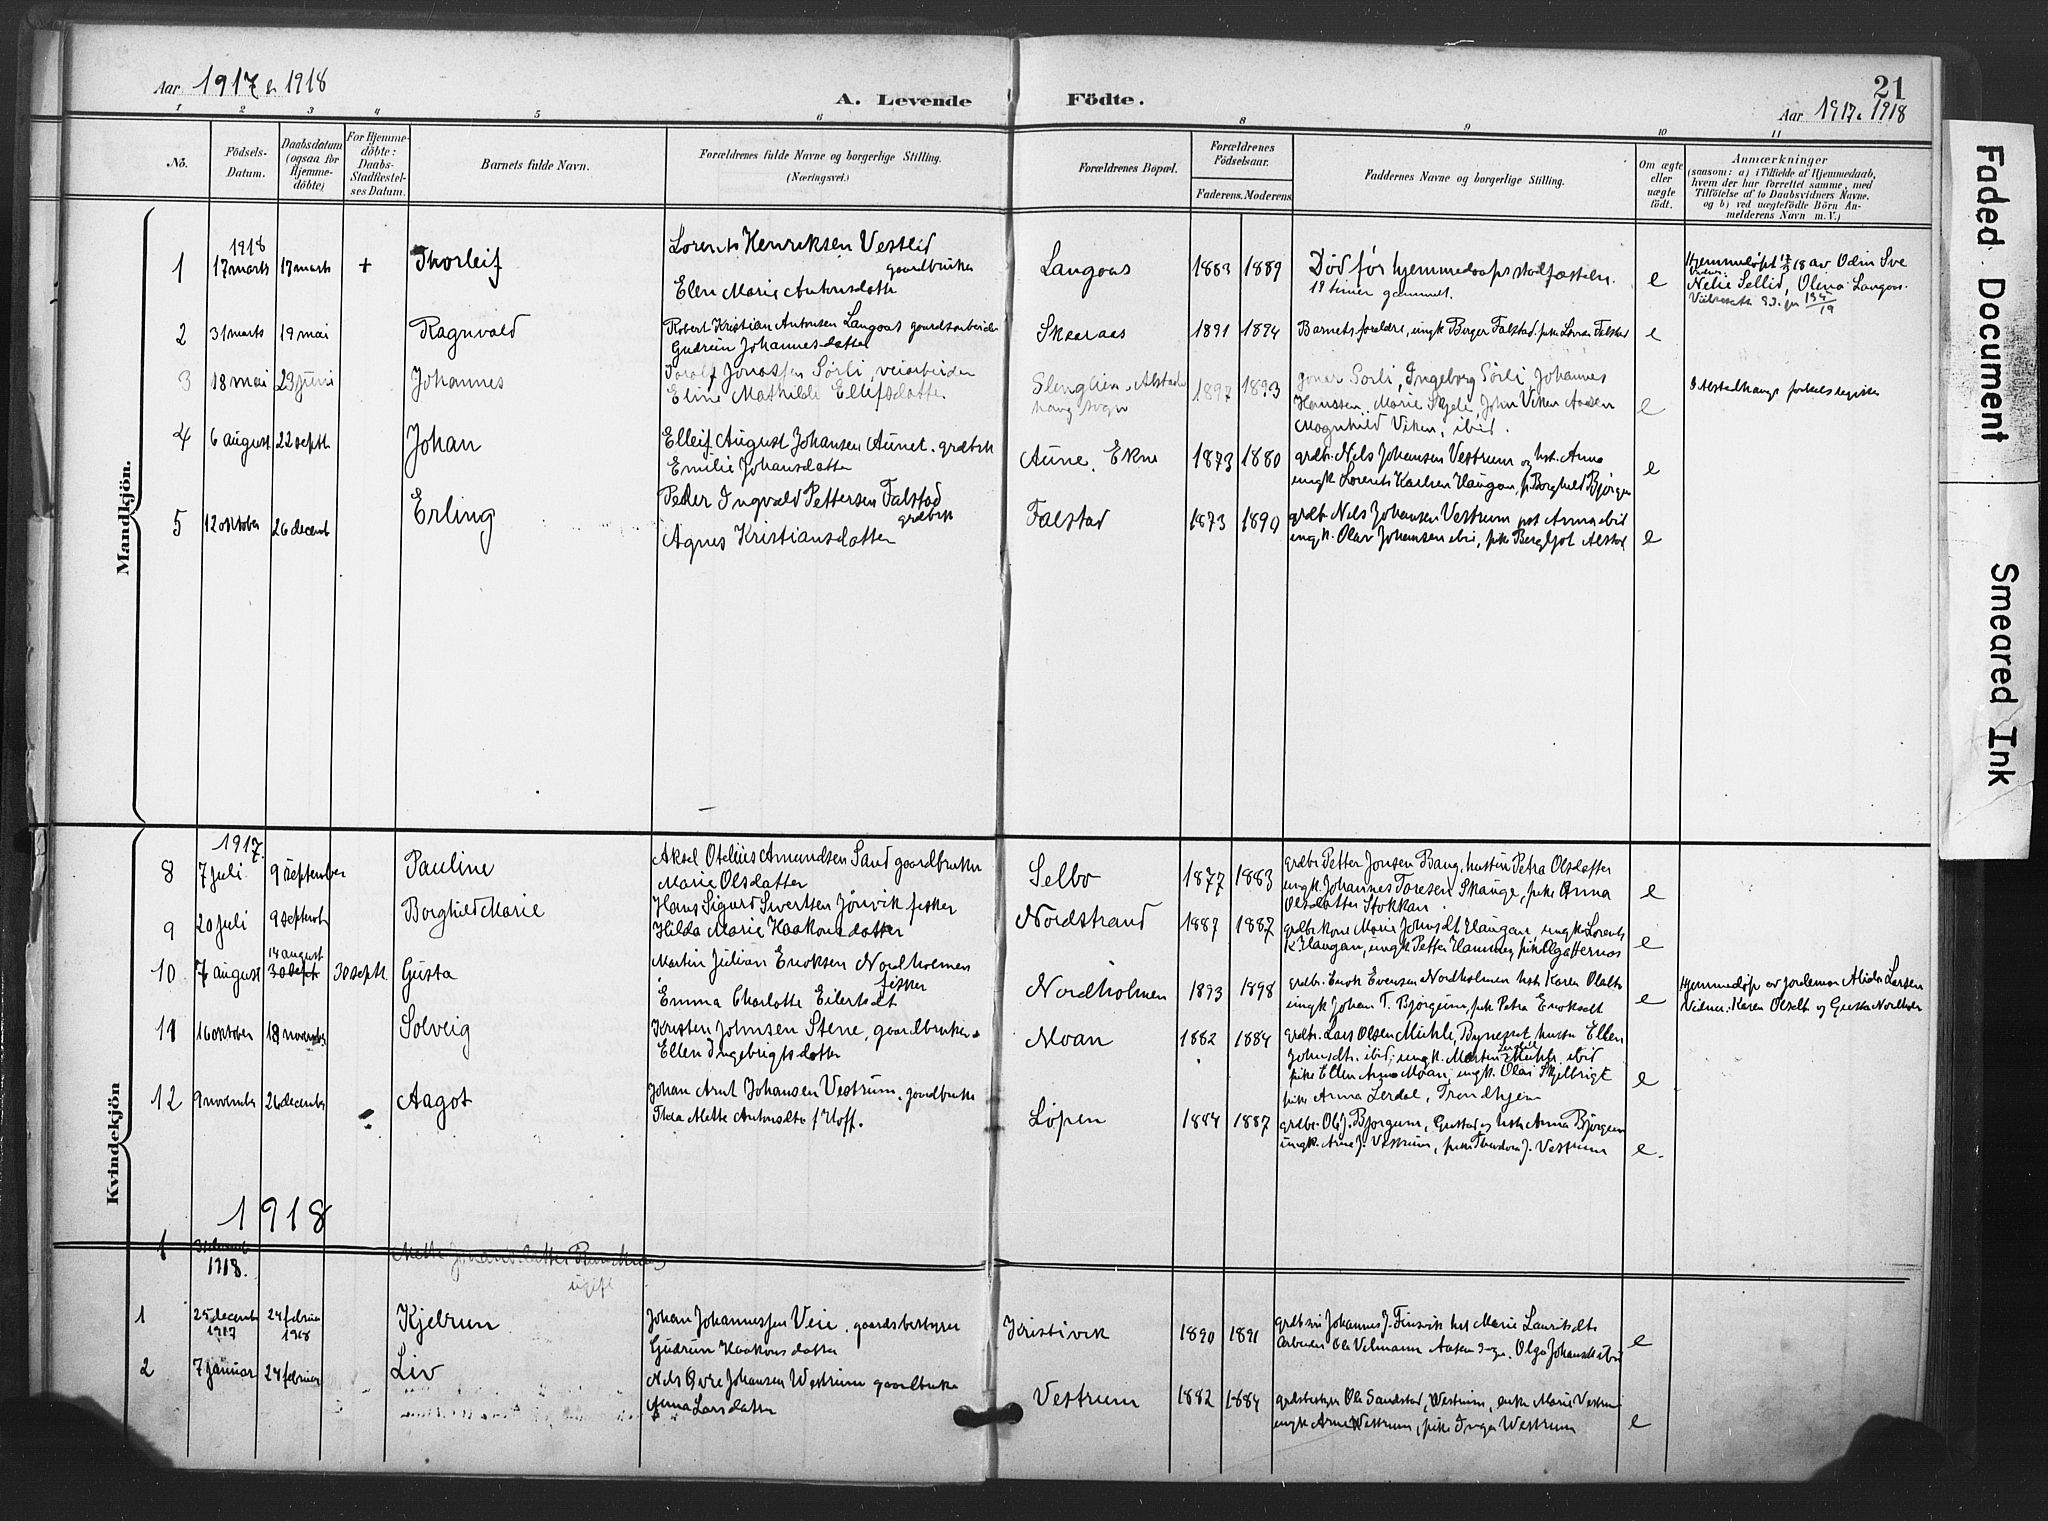 21
Aar 1917 & 1918
A. Levende Födte.
Aar 1917 & 1918
1 2 3 4 5 6 8 9 10 11
No.
Födsels-Datum.
Daabsdatum (ogsaa for Hjemme-döbte)
For Hjemme-döbte: Daabs-Stadfæstel-ses Datum.
Barnets fulde Navn.
Forældrenes fulde Navne og borgerlige Stilling. (Næringsvei.)
Forældrenes Bopæl.
Forældrenes Födselsaar.
Faderens. Moderens
Faddernes Navne og borgerlige Stilling.
Om ægte eller uægte födt.
Anmærkninger
(saasom: a) i Tilfælde af Hjemmedaab,
hvem der har forrettet samme, med
Tilföielse af to Daabsvidners Navne.
og b) ved uægtefödte Börn An-
melderens Navn m. V.)
Mandkjön.
1918
1 17 marts 17 marts + Thorleif
Lorents Henriksen Vestlid gaardbruker
Elen Marie Antonsdatter
Langaas 1883 1889
Død før hjemmedaaps stadfæstelse.
18 timer gammel.
e
Hjemmedøpt 17/3 18 av Odin Sve
Nelie Sellid, Olina Langaas.
2 31 marts 19 mai Ragnvald
Robert Kristian Antonsen Langaas gaardsarbeider
Gudrun Johannesdatter
Skaaraas 1891 1894
Barnets forældre, ungk Birger Falstad, pike Lovise Falstad
e
3 18 mai 23 juni Johannes
Jonassen Sørli, veiarbeider
Eline Mathilde Ellefsdatter
1897 1893
Jonas Sørli, Ingeborg Sørli, Johannes
Hanssen, Marie Skjele, John Viken Aasen
Magnhild Viken, ibid.
e
4 6 august 22 septbr Johan
Elleif August Johansen Aunet. grdbrk
Emilie Johansdatter
Aune, Ekne 1873 1880
grdbr. Nils Johansen Vestrum og hst. Anna
ungk Lorents Karlsen Haugan, p. Borghild Bjørgen
e
5 12 oktober 26 decemb Erling
Peder Ingvald Pettersen Falstad grdbrk
Agnes Kristiansdatter
Falstad 1873 1890
grdbr. Nils Johansen Vestrum hst Anna ibid
ungk. Olav Johansen ibid, pike Bergljot Alstad
e
Kvindekjön
1917.
8 7 juli 9 september Pauline
Aksel Otelius Amundsen Sand gaardbruker
Marie Olsdatter
Selbo 1877 1883
grdbr Petter Jonsen Bang, hustru Petra Olsdatter
ungk. Johannes Toresen Skauge, pike Anna
Olsdatter Stokkan
e
9 20 juli 9 septemb Borghild Marie
Hans Sigurd Sivertsen Jørvik fisker
Hilda Marie Haakonsdatter
Nordstrand 1887 1887
grdbr kone Marie Johnsdt Haugan, ungk Lorents
K Haugan, ungk Petter Hammer, pike Olga Hernes
e
10 7 august 14 august 30 sept 30 septb. Gusta
Martin Julian Eriksen Nordholmen fisker
Emma Charlotte Eilertsdt
Nordholmen 1893 1898
grdbr. Enok Evensen Nordholmen hst Karen Olsdtr
ungk Johan T. Bjørgum, pike Petra Enoksdt
e
Hjemmedøpt av jordemor Alida Larsen
Vidner: Karen Olsdt og Gusta Nordholm
11 16 oktober 18 november Solveig
Kristen Johnsen Stene, gaardbruker
Ellen Ingebrigtsdatter
Moan 1882 1884
grdbr. Lars Olsen Mühle, Byneset, hustru Ellen
Johnsdt. ibid, ungk. Martin Mühle ibid
pike Ellen Anna Moan, ungk. Olai Skjelbrigt
pike Anna Lerdal, Trondhjem
e
12 9 november 26 december Aagot
Johan Arnt Johansen Vestrum, gaardbruker
Thea Mette Antonsdtr f Hoff.
Løpen 1884 1887
grdbr. Ole J. Bjørgum, Gustad og hstr Anna Bjørgum
ungk. Arne J. Vestrum, pike Theodora J. Vestrum
e.
1918
1
1918.
ugift
1 25 decemb 1917 24 februar 1918 Kjelrun
Johan Johannessen Veie, gaardsbestyrer
Gudrun Haakonsdatter
Kristivik 1890 1891
Johannes J. Finsvik hst Marie Lauritsdtr
Arbeider Ole Vilmann Aasen
e
2 7 januar 24 februar Liv
Nils Øvre Johansen Westrum gaardbruker
Anna Larsdatter
Vestrum 1882 1884
grdbestyrer Ole Sandstad, Westrum, enke Marie Vestrum
ungk Arne Westrum, pike Inga Westrum
e
Faded Document
Smeared Ink